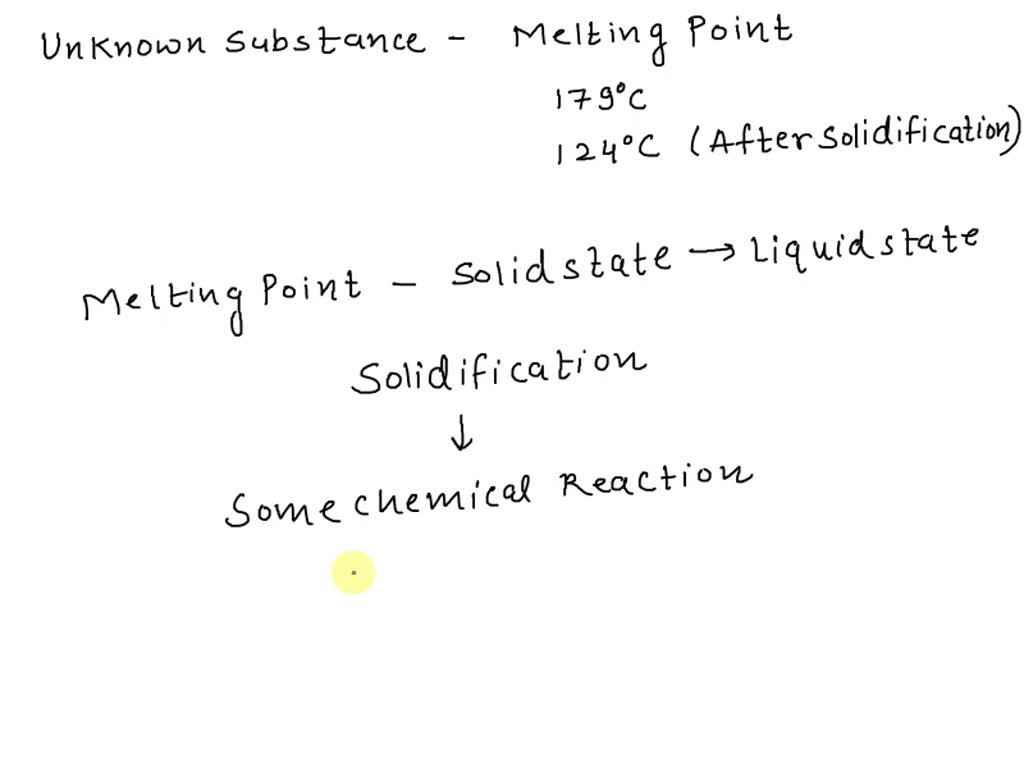 Unknown Substance - Melting Point
179°C
124°C (After Solidification)
Melting Point - Solid state → Liquid state
Solidification
↓
Some chemical Reaction